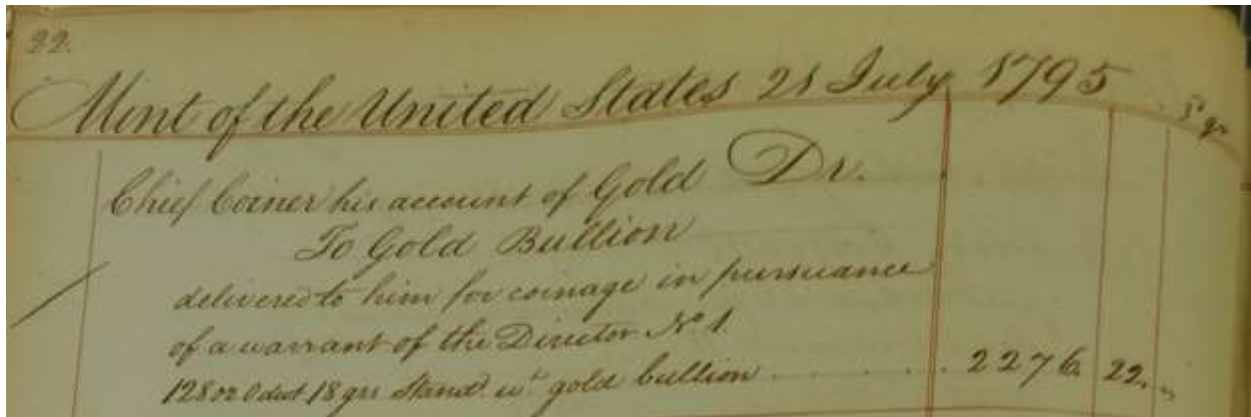 22.
Mint of the United States 21 July 1795
Chief Coiner his account of Gold Dr.
To Gold Bullion
delivered to him for coinage in pursuance
of a warrant of the Director No 1.
128 oz 0 dwt 18 grs Stand. wt. gold bullion . . . . . . 2276. 22.